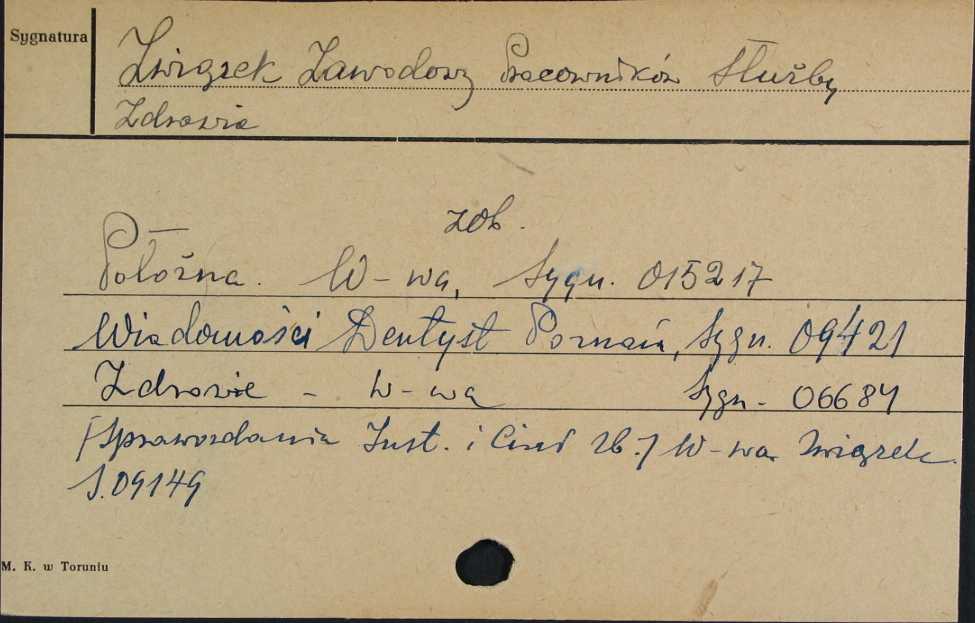 Sygnatura
Związek Zawodowy Pracowników Służby
Zdrowia
zob.
Położna. W-wa, Sygn. 015217
Wiadomości Dentyst Poznań, Sygn. 09421
Zdrowie - W-wa Sygn. 06684
[Sprawozdania Inst. i Ciał Zb.] W-wa Związek.
S.09149
M. K. w Toruniu